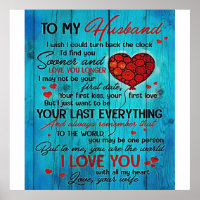 TO MY Husband
I wish I could turn back the clock
I'd find you
Sooner and
LOVE YOU LONGER
I may not be your
first date,
Your first kiss, your first love
But I just want to be
YOUR LAST EVERYTHING
And always remember that
TO THE WORLD
you may be one person
But to me, you are the world
I LOVE YOU
with all my heart
Love, your wife